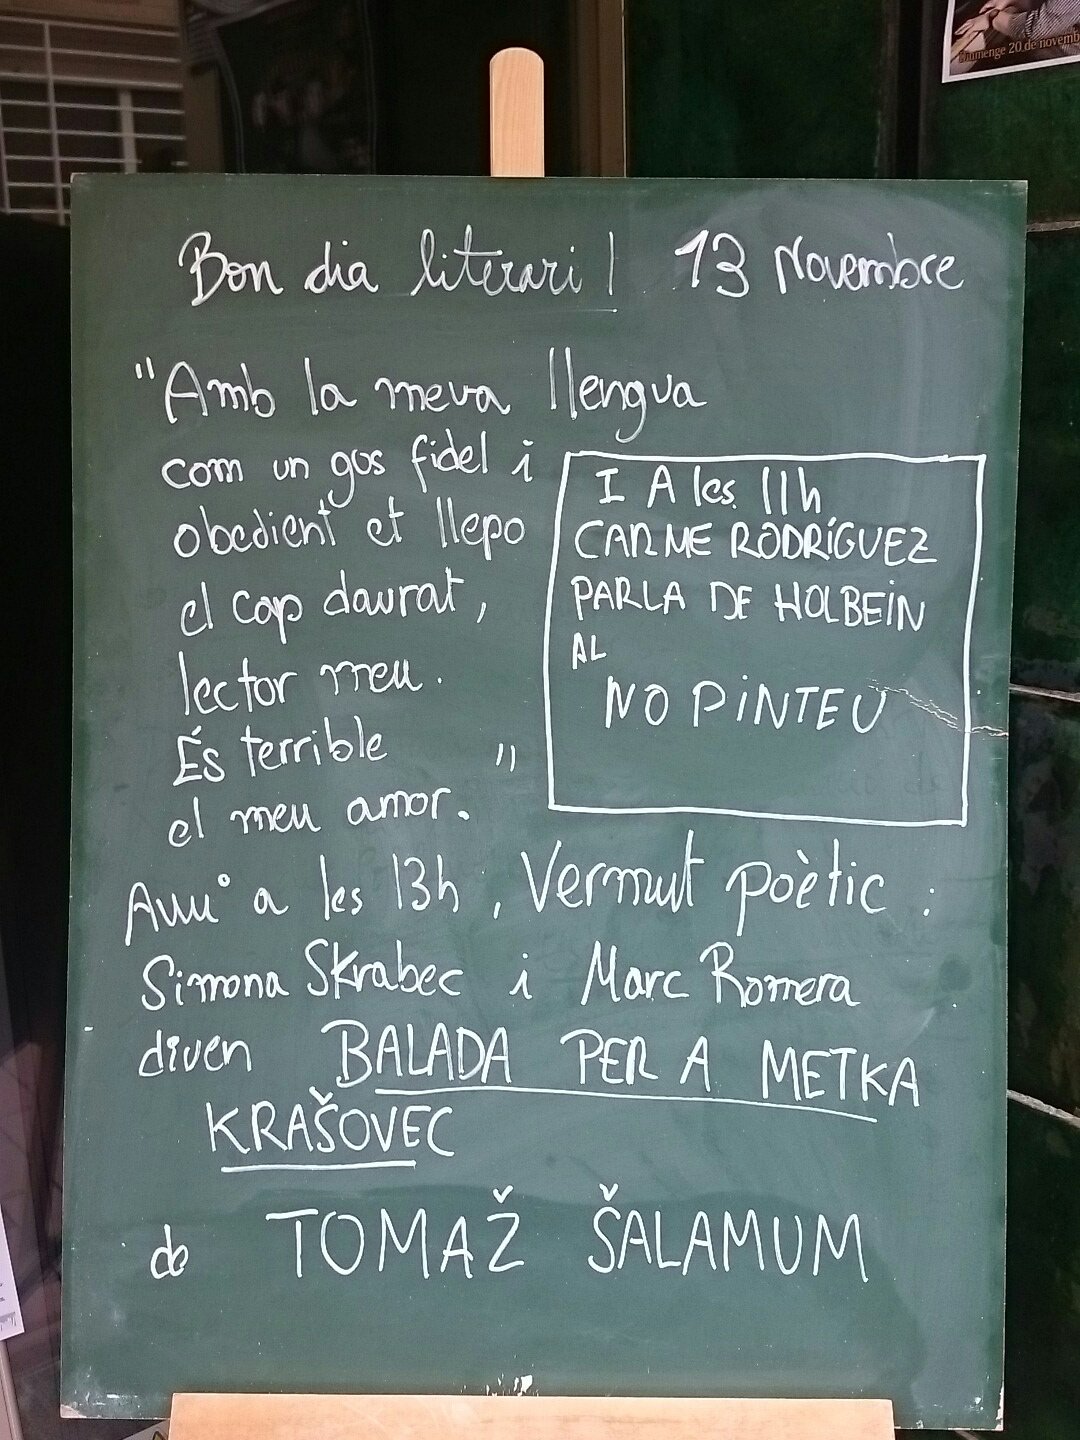 Diumenge 20 de novemb
Bon dia literari! 13 Novembre
"Amb la meva llengua
com un gos fidel i
obedient et llepo
el cap daurat,
lector meu.
És terrible
el meu amor."
I A les 11h
CARME RODRÍGUEZ
PARLA DE HOLBEIN
AL
NO PINTEU
Avui a les 13h, Vermut poètic:
Simona Skrabec i Marc Romera
diuen BALADA PER A METKA
KRAŠOVEC
de TOMAŽ ŠALAMUM